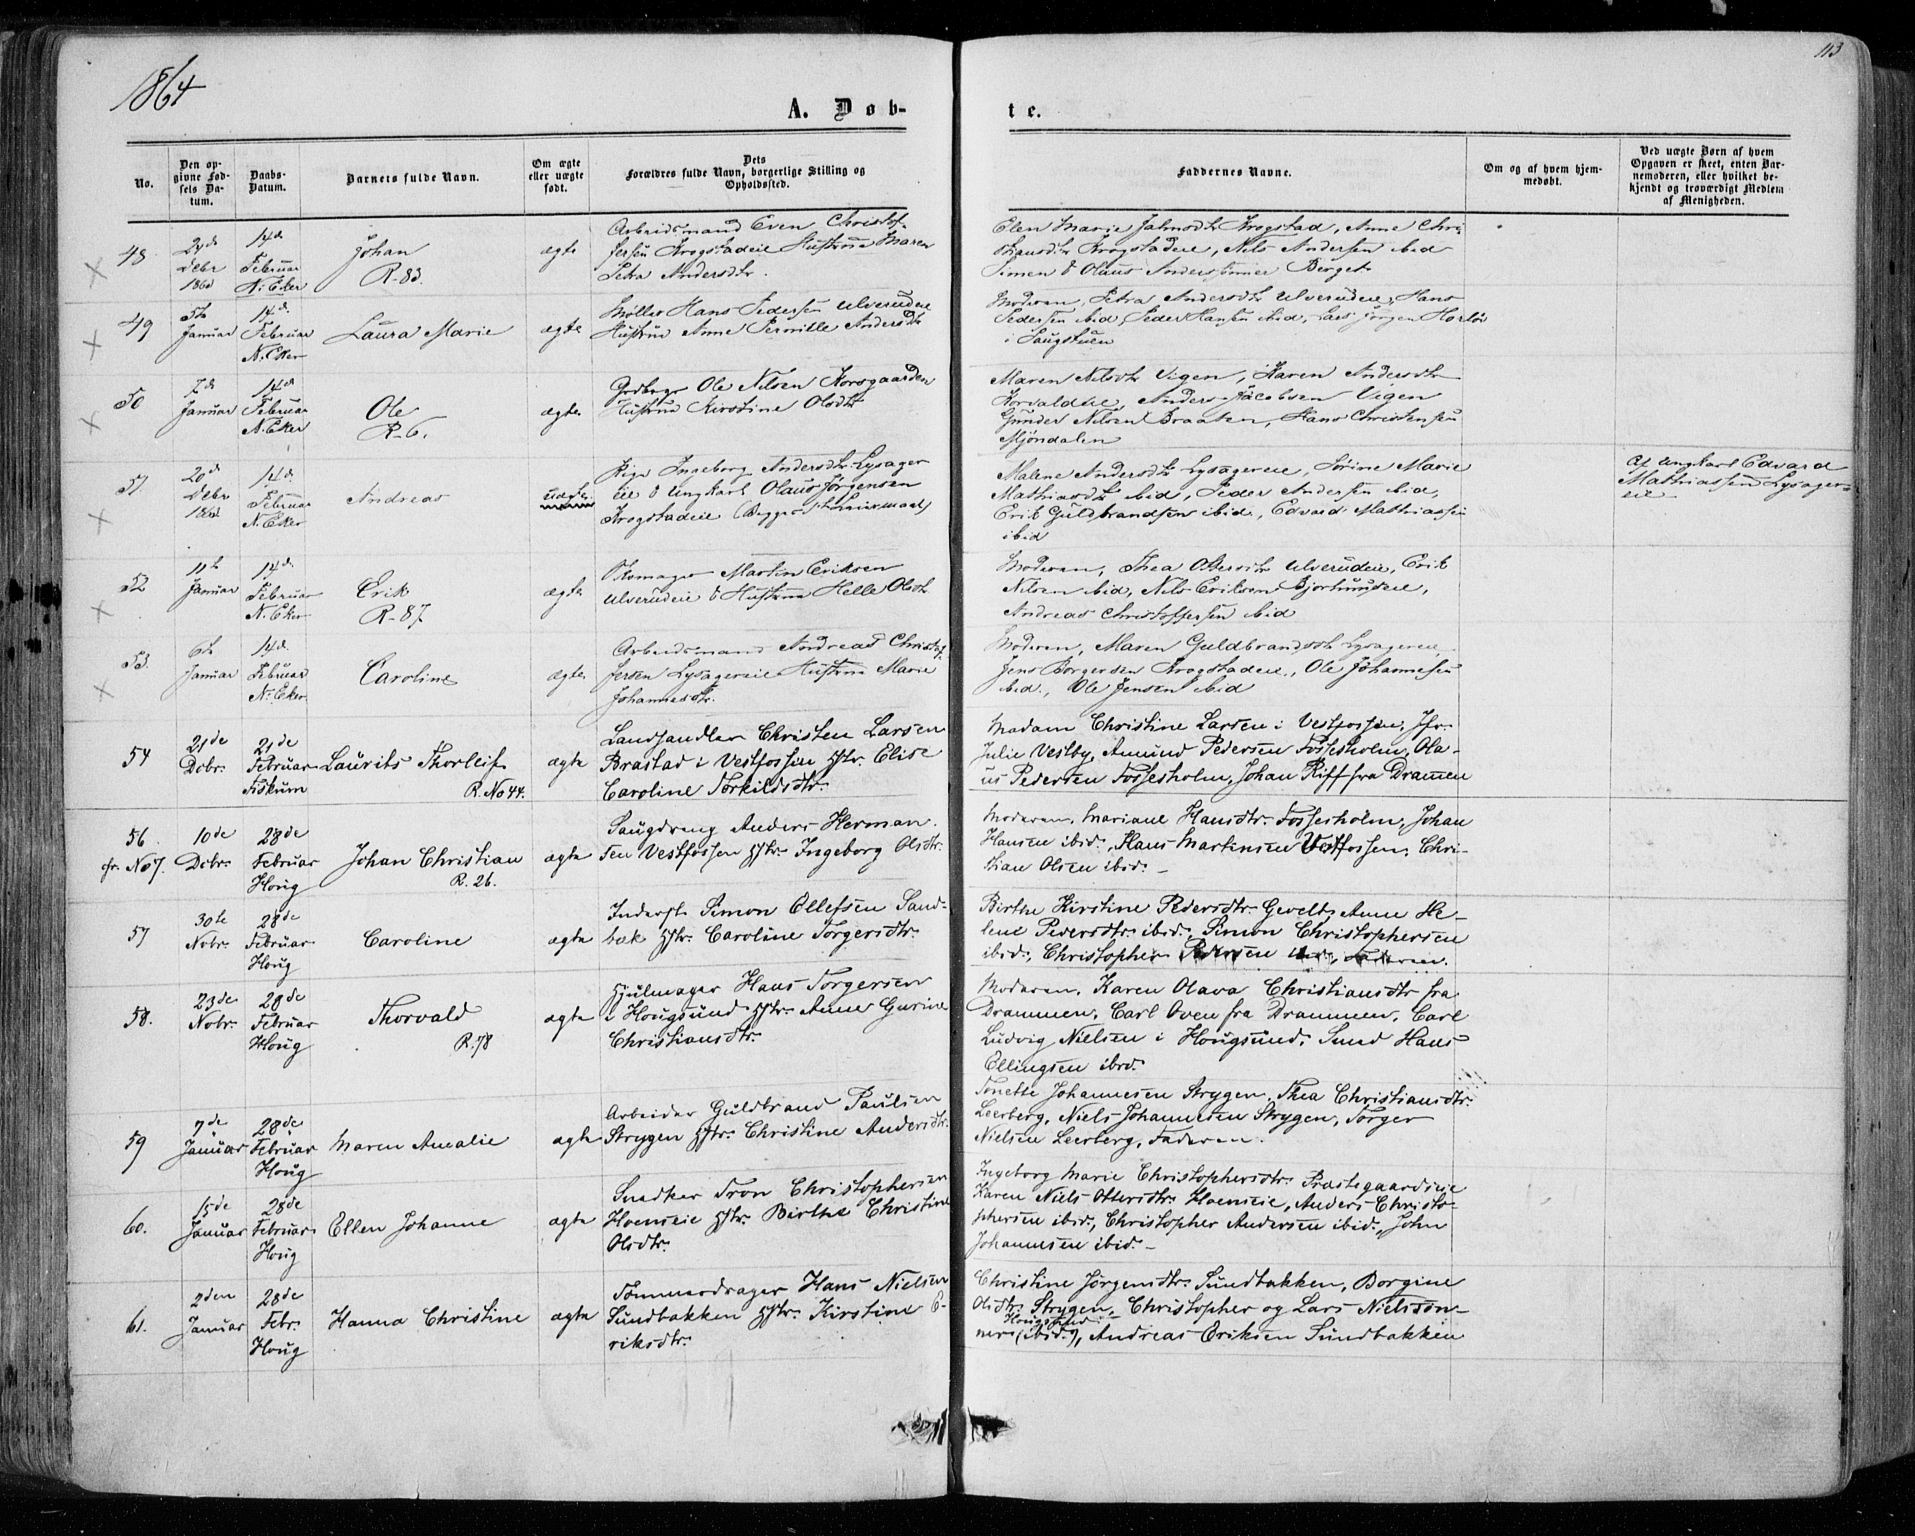 1864
113
A. Døb-
te.
No.
Den op-
givne Fød-
sels Da-
tum.
Daabs-
Datum.
Barnets fulde Navn.
Om ægte
eller uægte
født.
Dets
Forældres fulde Navn, borgerlige Stilling og
Opholdssted.
Faddernes Navne.
Om og af hvem hjem-
medøbt.
Ved uægte Børn af hvem
Opgaven er skeet, enten Bar-
nemoderen, eller hvilket be-
kjendt og troværdigt Medlem
af Menigheden.
48
Debr
14d
Februar
N. Eker
Johan
R-83.
ægte
Arbeidsmand Even Christof-
fersen Krogstadeie Hustrue Maren
Petra Andersdtr.
Elen Marie Krogstad, Anne Chri-
stiansdtr Krogstadeie, Nils Andersen ibid
Simen & Olaus Anderssønner Berget
49
5te
Januar
14d
Februar
N. Eker
Laura Marie
ægte
Møller Hans Pedersen Ulverudeie
Hustrue Anne Pernille Andersdtr
Moderen, Petra Andersdtr Ulverudeie, Hans
Pedersen ibid, Peder Hansen ibid, Lars Jørgen
i Saugstuen
50
7de
Januar
14d
Februar
N. Eker
Ole
R-6.
ægte
Ole Nilsen Korsgaarden
Hustrue Kirstine Olsdtr
Maren Nilsdtr Vigen, Karen Andersdtr
Anders Jacobsen Vigen
Gunder Nilsen Braaten, Hans Christensen
Mjøndalen
51
20d
Debr
14d
Februar
N. Eker
Andreas
uægte
Pige Ingeborg Andersdtr Lysager
eie & Ungkarl Olaus Jørgensen
Krogstadeie (Begges Leiermaal)
Malene Andersdtr Lysagereie, Sørine Marie
Mathiasdtr ibid, Peder Andersen ibid,
Erik Guldbrandsen ibid, Edvard Mathiassen
ibid
Af Ungkarl Edvard
Mathiassen Lysager-
eie
52
11te
Januar
14d
Februar
N. Eker
Erik
R-87
ægte
Skomager Martin Eriksen
Ulverudeie & Hustrue Helle Olsdtr
Moderen, Thea Ottersdtr Ulverudeie, Erik
Nilsen ibid, Nils Eriksen Bjørhundeie,
Andreas Christoffersen ibid
53
6te
Januar
14d
Februar
N. Eker
Caroline
ægte
Arbeidsmand Andreas Christof-
fersen Lysagereie Hustrue Marie
Johannesdtr.
Moderen, Maren Guldbrandsdtr Lysagereie,
Jens Borgersen Krogstadeie, Ole Johannesen
ibid, Ole Jensen ibid
54
21de
Dcbr.
21de
Februar
Fiskum
Laurits Thorleif
R. No 44.
ægte
Landhandler Christen Larsen
Brastad i Vestfossen Hstr. Elise
Caroline Torkildsdtr.
Madam Christine Larsen i Vestfossen, Jfr.
Julie Vestby, Amund Pedersen Fossesholm, Ola-
us Pedersen Fossesholm, Johan Riff fra Dramen
56
fr. No 7.
10de
Dcbr.
28de
Februar
Houg
Johan Christian
R. 26.
ægte
Saugdreng Anders Herman-
sen Vestfossen Hstr. Ingeborg Olsdtr.
Moderen. Mariane Hansdtr. Fossesholm, Johan
Hansen ibid., Hans Martinsen Vestfossen. Chri-
stian Olsen ibid.
57
30te
Nobr.
28de
Februar
Houg
Caroline
ægte
Inderst Simon Ellefsen Sand-
bæk Hstr. Caroline Torgersdtr.
Birthe Kirstine Pedersdtr. Gevelt, Anne He-
lene Pedersdtr. ibid., Simon Christophersen
ibid., Christopher Pedersen
58.
23de
Nobr.
28de
Februar
Houg
Thorvald
R. 78
ægte
Hjulmager Hans Torgersen
i Hougsund Hstr. Anne Gurine
Christiansdtr.
Moderen. Karen Olava Christiansdtr fra
Drammen. Carl Oven fra Drammen. Carl
Ludvig Nielsen i Hougsund. Hans
Ellingsen ibid.
59
7de
Januar
28de
Februar
Houg
Maren Amalie
ægte
Arbeider Guldbrand Paulsen
Strygen Hstr. Christine Andersdtr.
Tonette Johannesen Strygen. Thea Christiansdtr.
Leerberg, Niels Johannesen Strygen, Torger
Nielsen Leerberg, Faderen.
60.
15de
Januar
28de
Februar
Houg
Ellen Johanne
ægte
Snedker Tron Christophersen
Hoenseie Hstr. Birthe Christine
Olsdtr.
Ingeborg Marie Christophersdtr. Præstegaardseie
Karen Niels Ottersdtr. Hoenseie, Anders Christo-
phersen ibid., Christopher Andersen ibid., John
Johannesen ibid.
61.
2den
Januar
28de
Febr.
Houg
Hanna Christine
ægte
Tømmerdrager Hans Nielsen
Sundbakken Hstr. Kirstine E-
riksdtr.
Christine Jørgensdtr. Sundbakken, Borgine
Olsdtr. Strygen, Christopher og Lars Nielssøn-
Hougsund
ner (ibid.), Andreas Eriksen Sundbakken